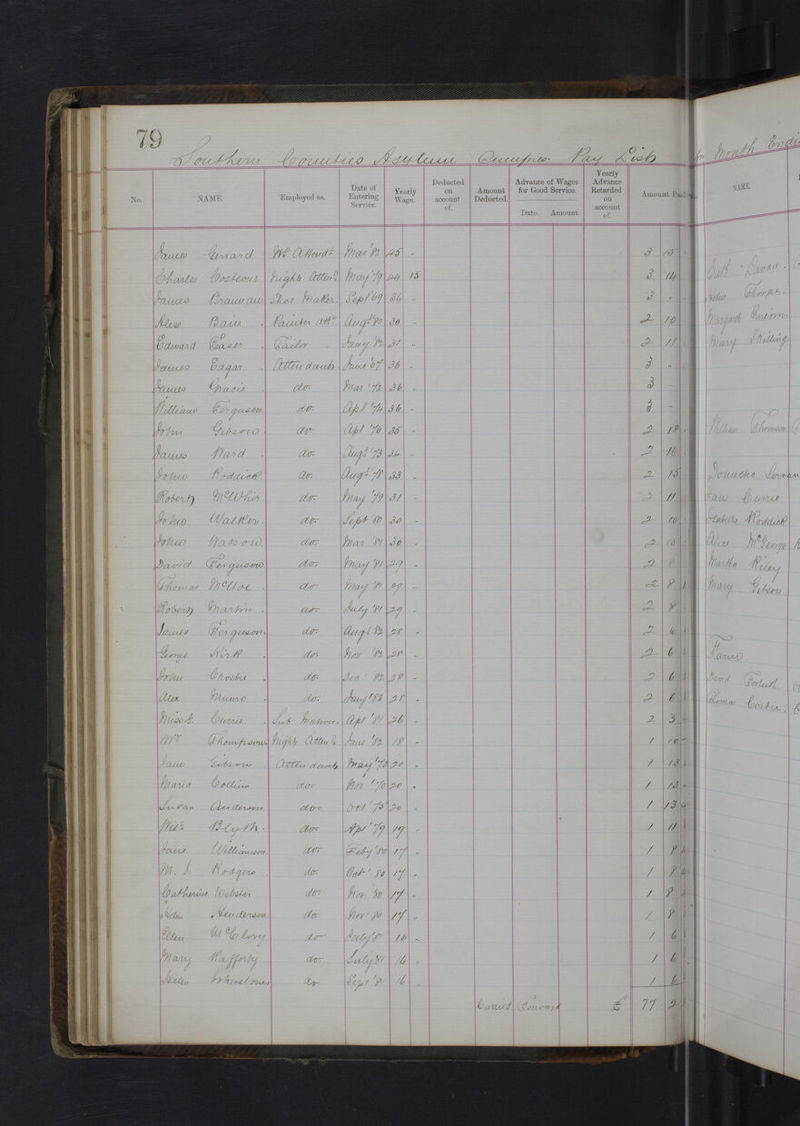 79
Southern Counties Asylum Dumfries Pay List for Month Endi
No. NAME. Employed as. Date of Entering Service. Yearly Wage. Deducted on account of. Amount Deducted. Advance of Wages for Good Service. Date. Amount. Yearly Advance Retarded on account of. Amount Paid NAME.
James Gerrard Hd Attendt Mar '83 45 - 3 15
Charles Costeous Night Attendt May '79 44 15 3 14
James Brannan Shoe Maker Sept '69 36 - 3 -
Alexr Bain Painter Augt '80 30 - 2 10
Edward Fraser Tailor Jany '82 31 - 2 11
James Edgar Attendant June '67 36 - 3 -
James Gracie do. Mar '72 36 - 3 -
William Ferguson do. Apl '74 36 - 3 -
John Gibson do. Apl '76 35 - 2 18
James Ward do. Augt '73 34 - 2 16
John Roddick do. Augt '78 33 - 2 15
Robert do. May '79 31 - 2 11
John Walker do. Sept '80 30 - 2 10
John Watson do. Mar '81 30 - 2 10
David Ferguson do. May '81 29 - 2 8
Thomas McIlroe do. May '81 29 - 2 8
Robert Martin do. July '81 29 - 2 8
James Ferguson do. Augt 82 28 - 2 6
George Kirk do. Nov '82 28 - 2 6
John Crosbie do. Dec '82 28 - 2 6
Alex Munro do. Jany '83 28 - 2 6
Miss Currie Sub Matron Apl '81 26 - 2 3
Mrs Thompson Night Attendt June '82 18 - 1 10
Jane Gibson Attendant May '70 20 - 1 13
Maria Collins do. Nov '70 20 - 1 13
Susan Anderson do. Oct '75 20 - 1 13
Blyth do. Apl '79 19 - 1 11
Jane Williamson do. Feby '80 17 - 1 8
M. J. Rodgers do. Oct '80 17 - 1 8
Catherine Webster do. Nov 80 17 - 1 8
Helen Henderson do. Nov '80 17 - 1 8
Ellen McClory do. July '81 16 - 1 6
Mary Rafferty do. July '81 16 - 1 6
Helen Johnstone do. Sept '81 16 - 1 6
Carried Forward £ 77 2
Helen Thorpe
Mary Skilling
William Thomson
Domestic Servan
Jane Currie
Isabella Roddick
Alice McGeorge
Martha Riley
Mary Gibson
Farm